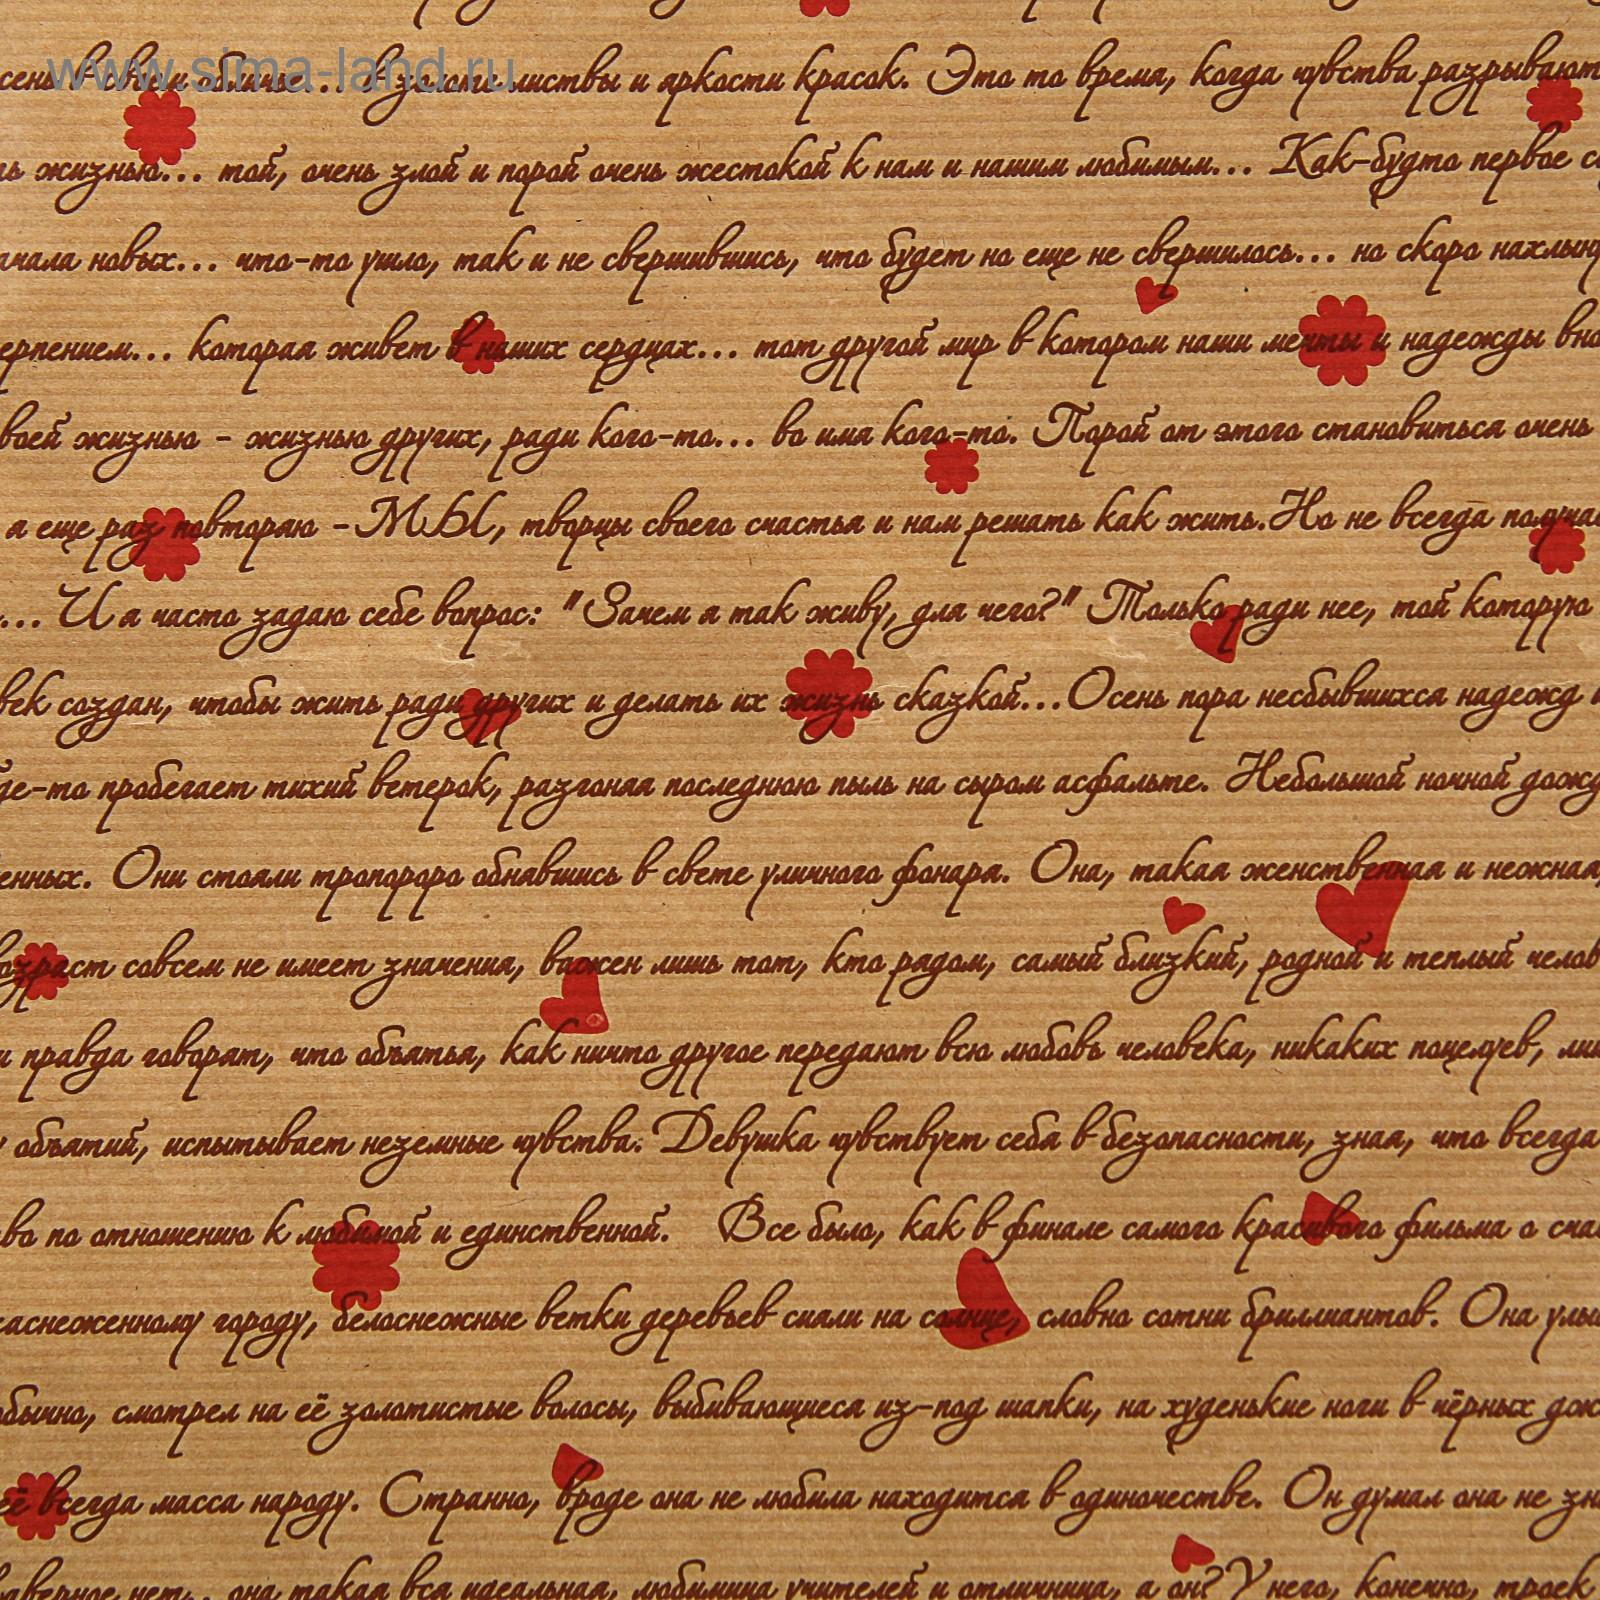 www.sima-land.ru
листвы и яркости красок. Это то время, когда чувства разрывают
жизнью... той, очень злой и порой очень жестокой к нам и нашим любимым... Как-будто первое
ачала новых... что-то ушло, так и не свершившись, что будет но еще не свершилось... но скоро нахлын
ерпением... которая живет в наших сердцах... тот другой мир в котором наши мечты и надежды
воей жизнью - жизнью других, ради кого-то... во имя кого-то. Порой от этого становиться очень
а еще раз повторяю - МЫ, творцы своего счастья и нам решать как жить. Но не всегда получае
... И я часто задаю себе вопрос: "Зачем я так живу, для чего?" Только ради нее, той которую
век создан, чтобы жить ради других и делать их жизнь сказкой...Осень пора несбывшихся надежд
де-то пробегает тихий ветерок, разгоняя последнюю пыль на сыром асфальте. Небольшой ночной дожд
енных. Они стояли тропороро обнявшись в свете уличного фонаря. Она, такая женственная и нежная,
возраст совсем не имеет значения, важен лишь тот, кто рядом, самый близкий, родной и теплый челов
и правда говорят, что объятья, как ничто другое передают всю любовь человека, никаких поцелуев, ли
объятий, испытывает неземные чувства. Девушка чувствует себя в безопасности, зная, что всегда
во по отношению к любимой и единственной. Все было, как в финале самого красивого фильма о сча
заснеженному городу, белоснежные ветки деревьев сияли на солнце, словно сотни бриллиантов. Она улы
обычно, смотрел на её золотистые волосы, выбивающиеся из-под шапки, на худенькие ноги в чёрных
её всегда масса народу. Странно, вроде она не любила находится в одиночестве. Он думал она не зн
аверное нет... она такая вся идеальная, любимица учителей и отличница, а он? У него, конечно, троек